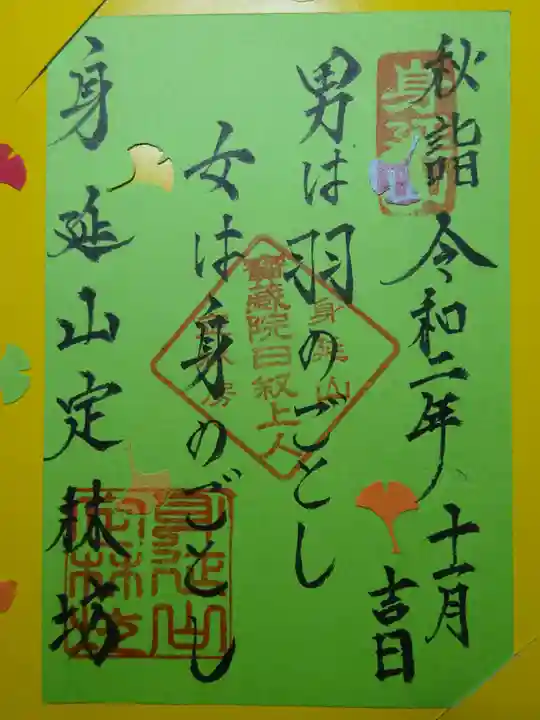 秋詣 令和二年 十一月
吉日
男は羽のごとし
女は身のごとし
身延山定林坊
身延山
寶蔵院日叙上人
定林房
身延山
定林坊